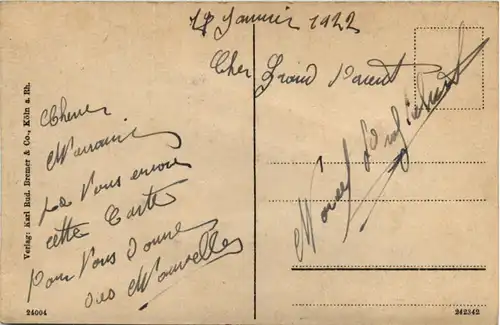 18 Janvier 1922
Cher Grand Parent
Cheres
Marraine
Je Vous envoie
cette Carte
Pour Vous donne
des Nouvelles
Marcel
Verlag: Karl Rud. Bremer & Co., Köln a. Rh.
24004
242342